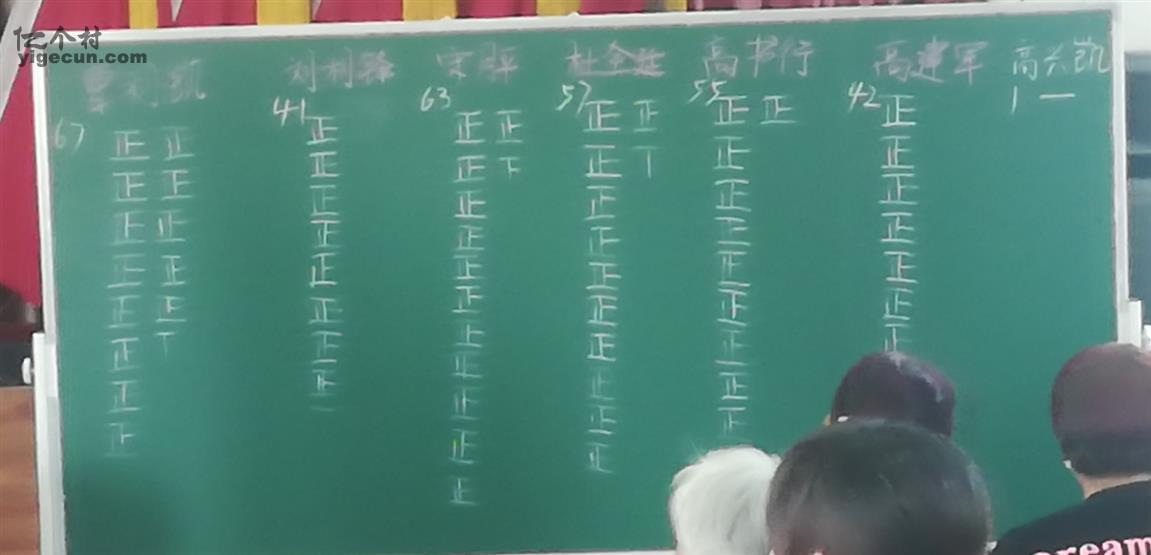 亿个村
yigecun.com
刘利锋 宋 高书行 高建军 高长凯
67 41 63 57 55 42 1 一
正 正 正 正 正 正 正 正 正 正
正 正 正 正 下 正 丅 正 正
正 正 正 正 正 正 正
正 正 正 正 正 正 正
正 正 正 正 正 正 正
正 丅 正 正 正 正 正
正 正 正 正 正 正
正 正 正 正 正
正 一 正 正 正
正 正
正